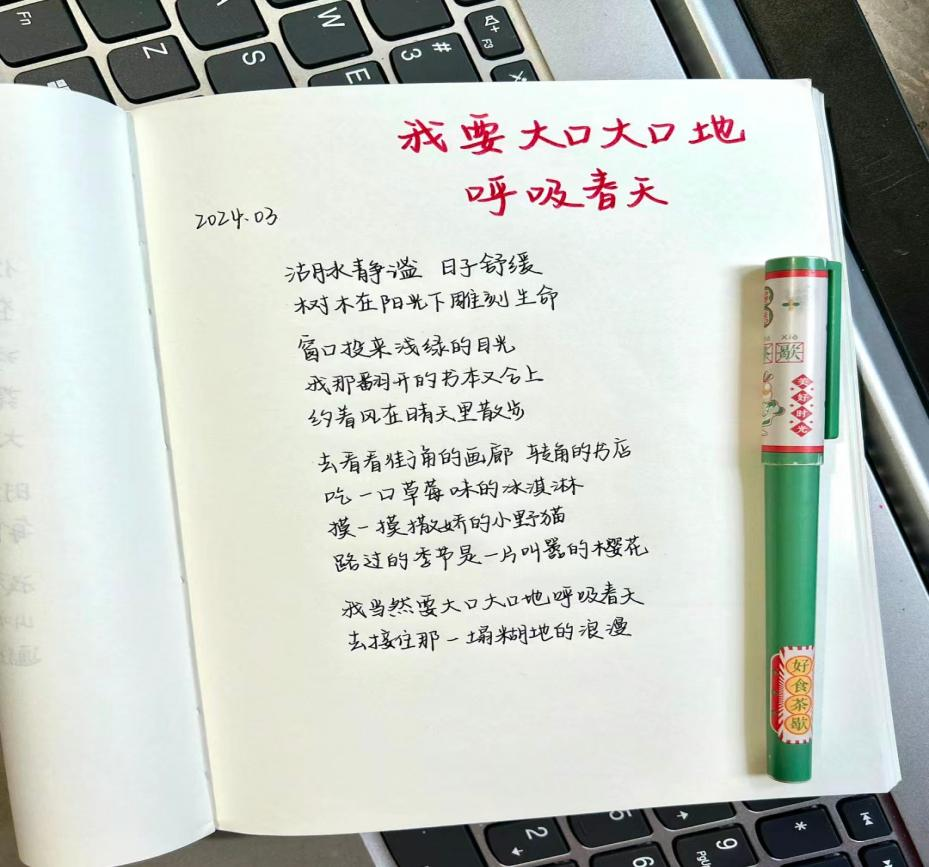 Fn
Z
S
W
#
3
E
F3
我要大口大口地
呼吸春天
2024.03
湖水静谧 日子舒缓
树木在阳光下雕刻生命
窗口投来浅绿的目光
我那翻开的书本又合上
约着风在晴天里散步
去看看街角的画廊 转角的书店
吃一口草莓味的冰淇淋
摸一摸撒娇的小野猫
路过的季节是一片叫嚣的樱花
我当然要大口大口地呼吸春天
去接住那一塌糊地的浪漫
Xiē
歇
美好时光
好食茶歇
2
5
6
9
PgUp
*